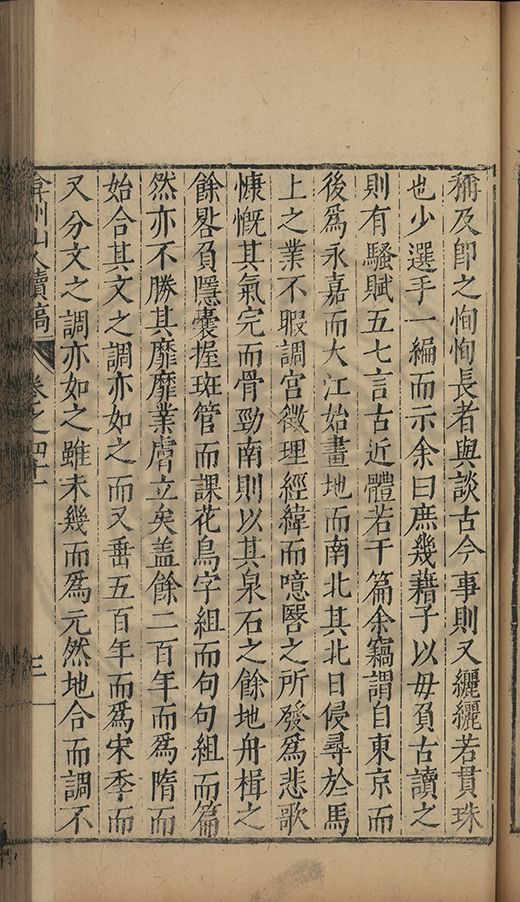 稱及卽之恂恂長者與談古今事則又纚纚若貫珠
也少選手一編而示余曰庶幾藉子以毋負古讀之
則有騷賦五七言古近體若干篇余竊謂自東京而
後爲永嘉而大江始畫地而南北其北日侵尋於馬
上之業不暇調宮徵理經緯而噫嚘之所發爲悲歌
慷慨其氣完而骨勁南則以其泉石之餘地舟楫之
餘晷負隱囊握斑管而課花鳥字組而句句組而篇
然亦不勝其靡靡業膚立矣盖餘二百年而爲隋而
始合其文之調亦如之而又垂五百年而爲宋季而
又分文之調亦如之雖未幾而爲元然地合而調不
弇州山人續稿 卷之四十一 三